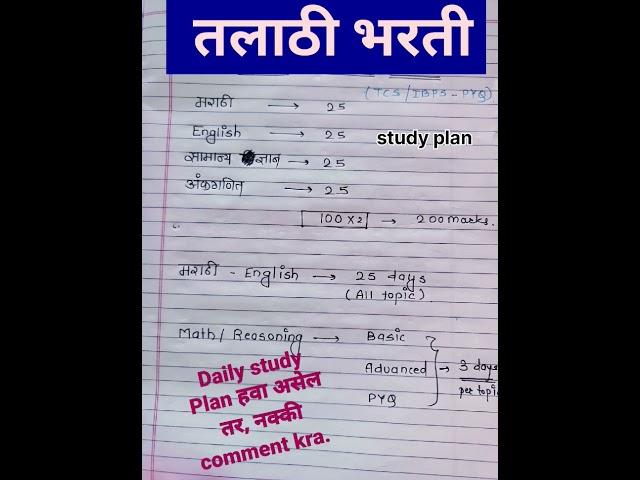 तलाठी भरती
(TCS/IBPS - PYQ)
मराठी → 25
English → 25
study plan
सामान्य ज्ञान → 25
अंकगणित → 25
100 x 2 → 200 marks.
मराठी - English → 25 days
(All topic)
Math / Reasoning → Basic
Advanced → 3 days
per topic
PYQ
Daily study
Plan हवा असेल
तर, नक्की
comment kra.